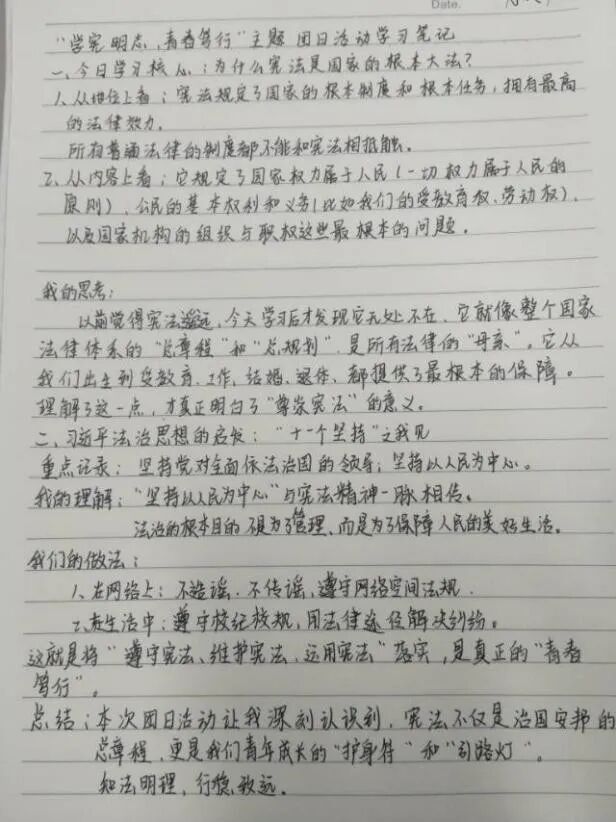 Date.
"学宪明志，青春笃行"主题 团日活动学习笔记
一、今日学习核心：为什么宪法是国家的根本大法？
1、从地位上看：宪法规定了国家的根本制度和根本任务，拥有最高
的法律效力。
所有普通法律的制度都不能和宪法相抵触。
2、从内容上看：它规定了国家权力属于人民（一切权力属于人民的
原则）、公民的基本权利和义务（比如我们的受教育权、劳动权）、
以及国家机构的组织与职权这些最根本的问题。
我的思考：
以前觉得宪法遥远，今天学习后才发现它无处不在，它就像整个国家
法律体系的"总章程"和"总规划"，是所有法律的"母亲"。它从
我们出生到受教育、工作、结婚、退休，都提供了最根本的保障。
理解了这一点，才真正明白了"尊崇宪法"的意义。
二、习近平法治思想的启发："十一个坚持"之我见
重点记录：坚持党对全面依法治国的领导；坚持以人民为中心。
我的理解："坚持以人民为中心"与宪法精神一脉相传。
法治的根本目的不是为了管理，而是为了保障人民的美好生活。
我们的做法：
1、在网络上：不造谣、不传谣，遵守网络空间法规.
2、在生活中：遵守校纪校规，用法律途径解决纠纷。
这就是将"遵守宪法、维护宪法、运用宪法"落实，是真正的"青春
笃行"。
总结：本次团日活动让我深刻认识到，宪法不仅是治国安邦的
总章程，更是我们青年成长的"护身符"和"引路灯"。
知法明理，行稳致远。